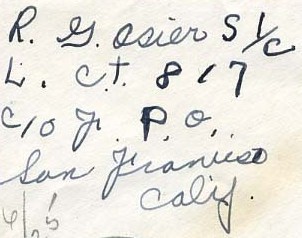 R. G. Osier S 1/c
L. C.T. 817
c/o F. P. O.
San Francisco
Calif.